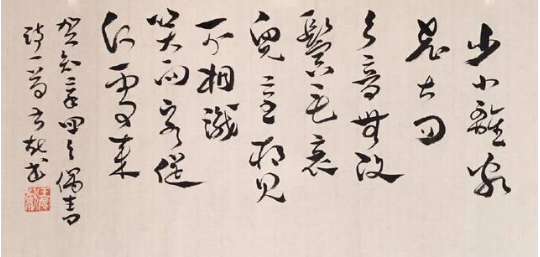 少小離家
老大回
鄉音無改
鬢毛衰
兒童相見
不相識
笑問客從
何處來
賀知章回鄉偶書
詩一首